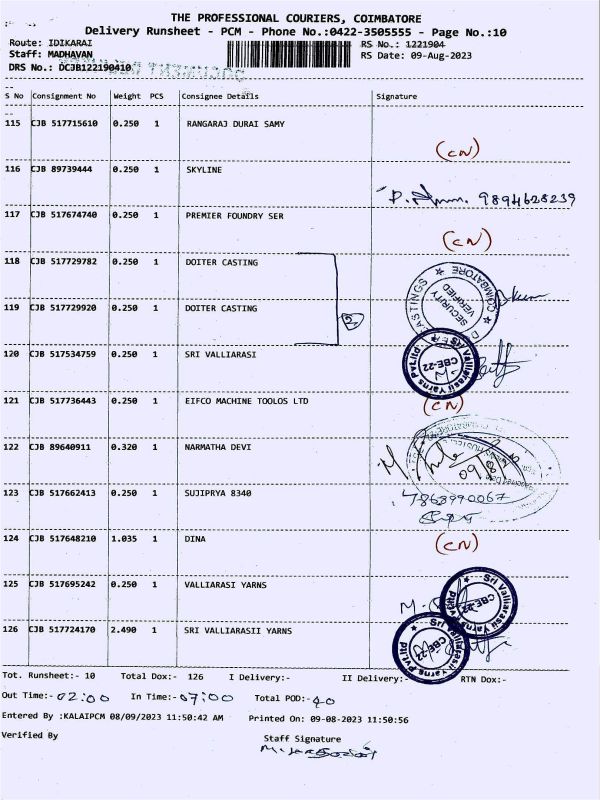 THE PROFESSIONAL COURIERS, COIMBATORE
Delivery Runsheet - PCM - Phone No.:0422-3505555 - Page No.:10
Route: IDIKARAI RS No.: 1221904
Staff: MADHAVAN RS Date: 09-Aug-2023
DRS No.: DCJB122190410
S No Consignment No Weight PCS Consignee Details Signature
115 CJB 517715610 0.250 1 RANGARAJ DURAI SAMY
(CN)
116 CJB 89739444 0.250 1 SKYLINE
9894628239
117 CJB 517674740 0.250 1 PREMIER FOUNDRY SER
(CN)
118 CJB 517729782 0.250 1 DOITER CASTING
SECURITY VERIFIED
COIMBATORE
119 CJB 517729920 0.250 1 DOITER CASTING
2
120 CJB 517534759 0.250 1 SRI VALLIARASI
Sri Valliarasii Yarns Pvt Ltd
CBE-22
121 CJB 517736443 0.250 1 EIFCO MACHINE TOOLOS LTD
(CN)
122 CJB 89640911 0.320 1 NARMATHA DEVI
123 CJB 517662413 0.250 1 SUJIPRYA 8340
7868990067
124 CJB 517648210 1.035 1 DINA
(CN)
125 CJB 517695242 0.250 1 VALLIARASI YARNS
Sri Valliarasii Yarns Pvt Ltd
CBE-22
126 CJB 517724170 2.490 1 SRI VALLIARASII YARNS
Sri Valliarasii Yarns Pvt Ltd
CBE-22
Tot. Runsheet:- 10 Total Dox:- 126 I Delivery:- II Delivery:- RTN Dox:-
Out Time:- 02:00 In Time:- 07:00 Total POD:- 40
Entered By :KALAIPCM 08/09/2023 11:50:42 AM Printed On: 09-08-2023 11:50:56
Verified By Staff Signature